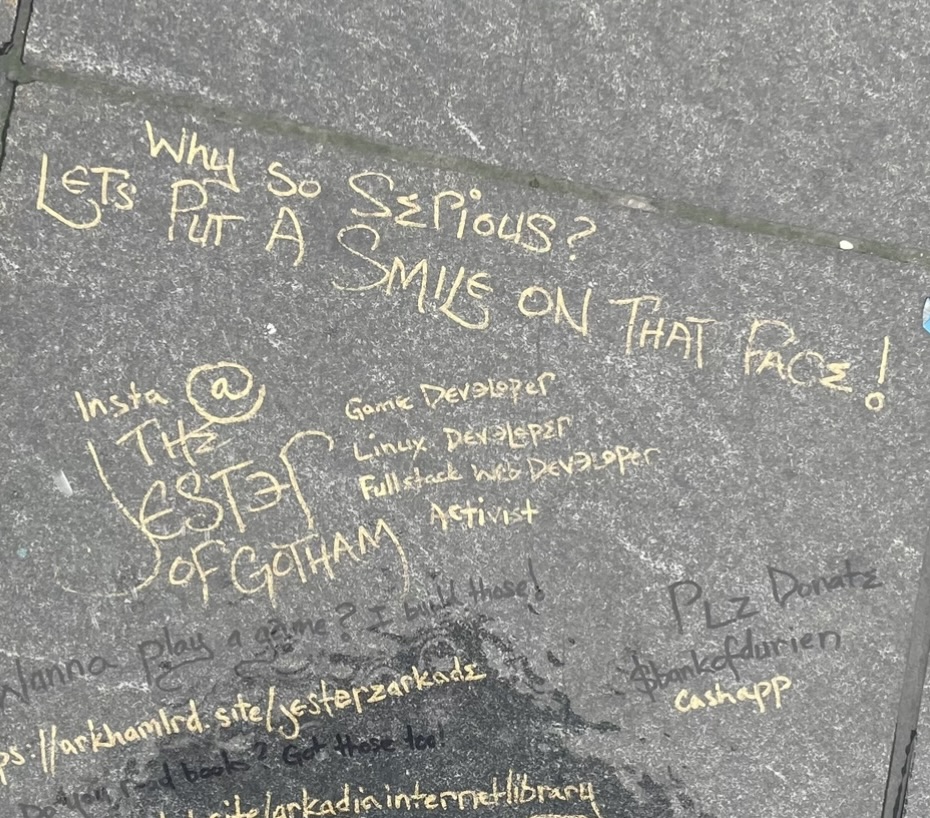 Why So SERious?
LETS PUT A
SMILE ON THAT FACE!
Insta @
THE
JESTER
OF GOTHAM
Game Developer
Linux Developer
Fullstack Web Developer
Activist
Wanna play a game? I build those!
ps://arkhamlrd.site/jesterzarkade
Do you read book? Got those too!
site/arkadiainternetlibrary
PLz Donate
$bankofdurien
cashapp